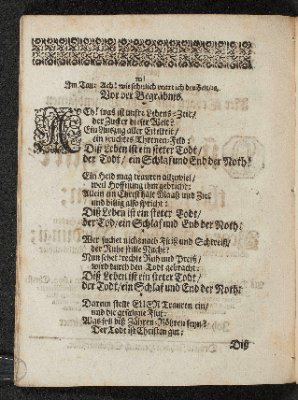 Im Ton: Ach! wie sehnlich wart ich der Zeit/ ꝛc.
Vor der Begräbnis.
Ach! was ist unsre Lebens-Zeit/
der Zucker dieser Welt?
Ein Auszug aller Eitelkeit/
ein feuchtes Threnen-Feld:
Diß Leben ist ein steter Todt/
der Todt/ ein Schlaf und End der Noth!
Ein Heid mag trauren allzuviel/
weil Hoffnung ihm gebricht:
Allein ein Christ hält Maaß und Ziel
und billig also spricht:
Diß Leben ist ein steter Todt/
der Tod/ ein Schlaf und End der Noth:
Wer suchet nicht nach Fleiß und Schweiß/
der Ruhe stille Nacht?
Nun sehet rechte Ruh und Preiß/
wird durch den Todt gebracht:
Diß Leben ist ein steter Todt/
der Todt/ ein Schlaf und End der Noth:
Darum stellt Euer Trauren ein/
und die gesalzne Flut:
Was soll diß Zähren-Röhren seyn?
Der Todt ist Christen gut:
Diß